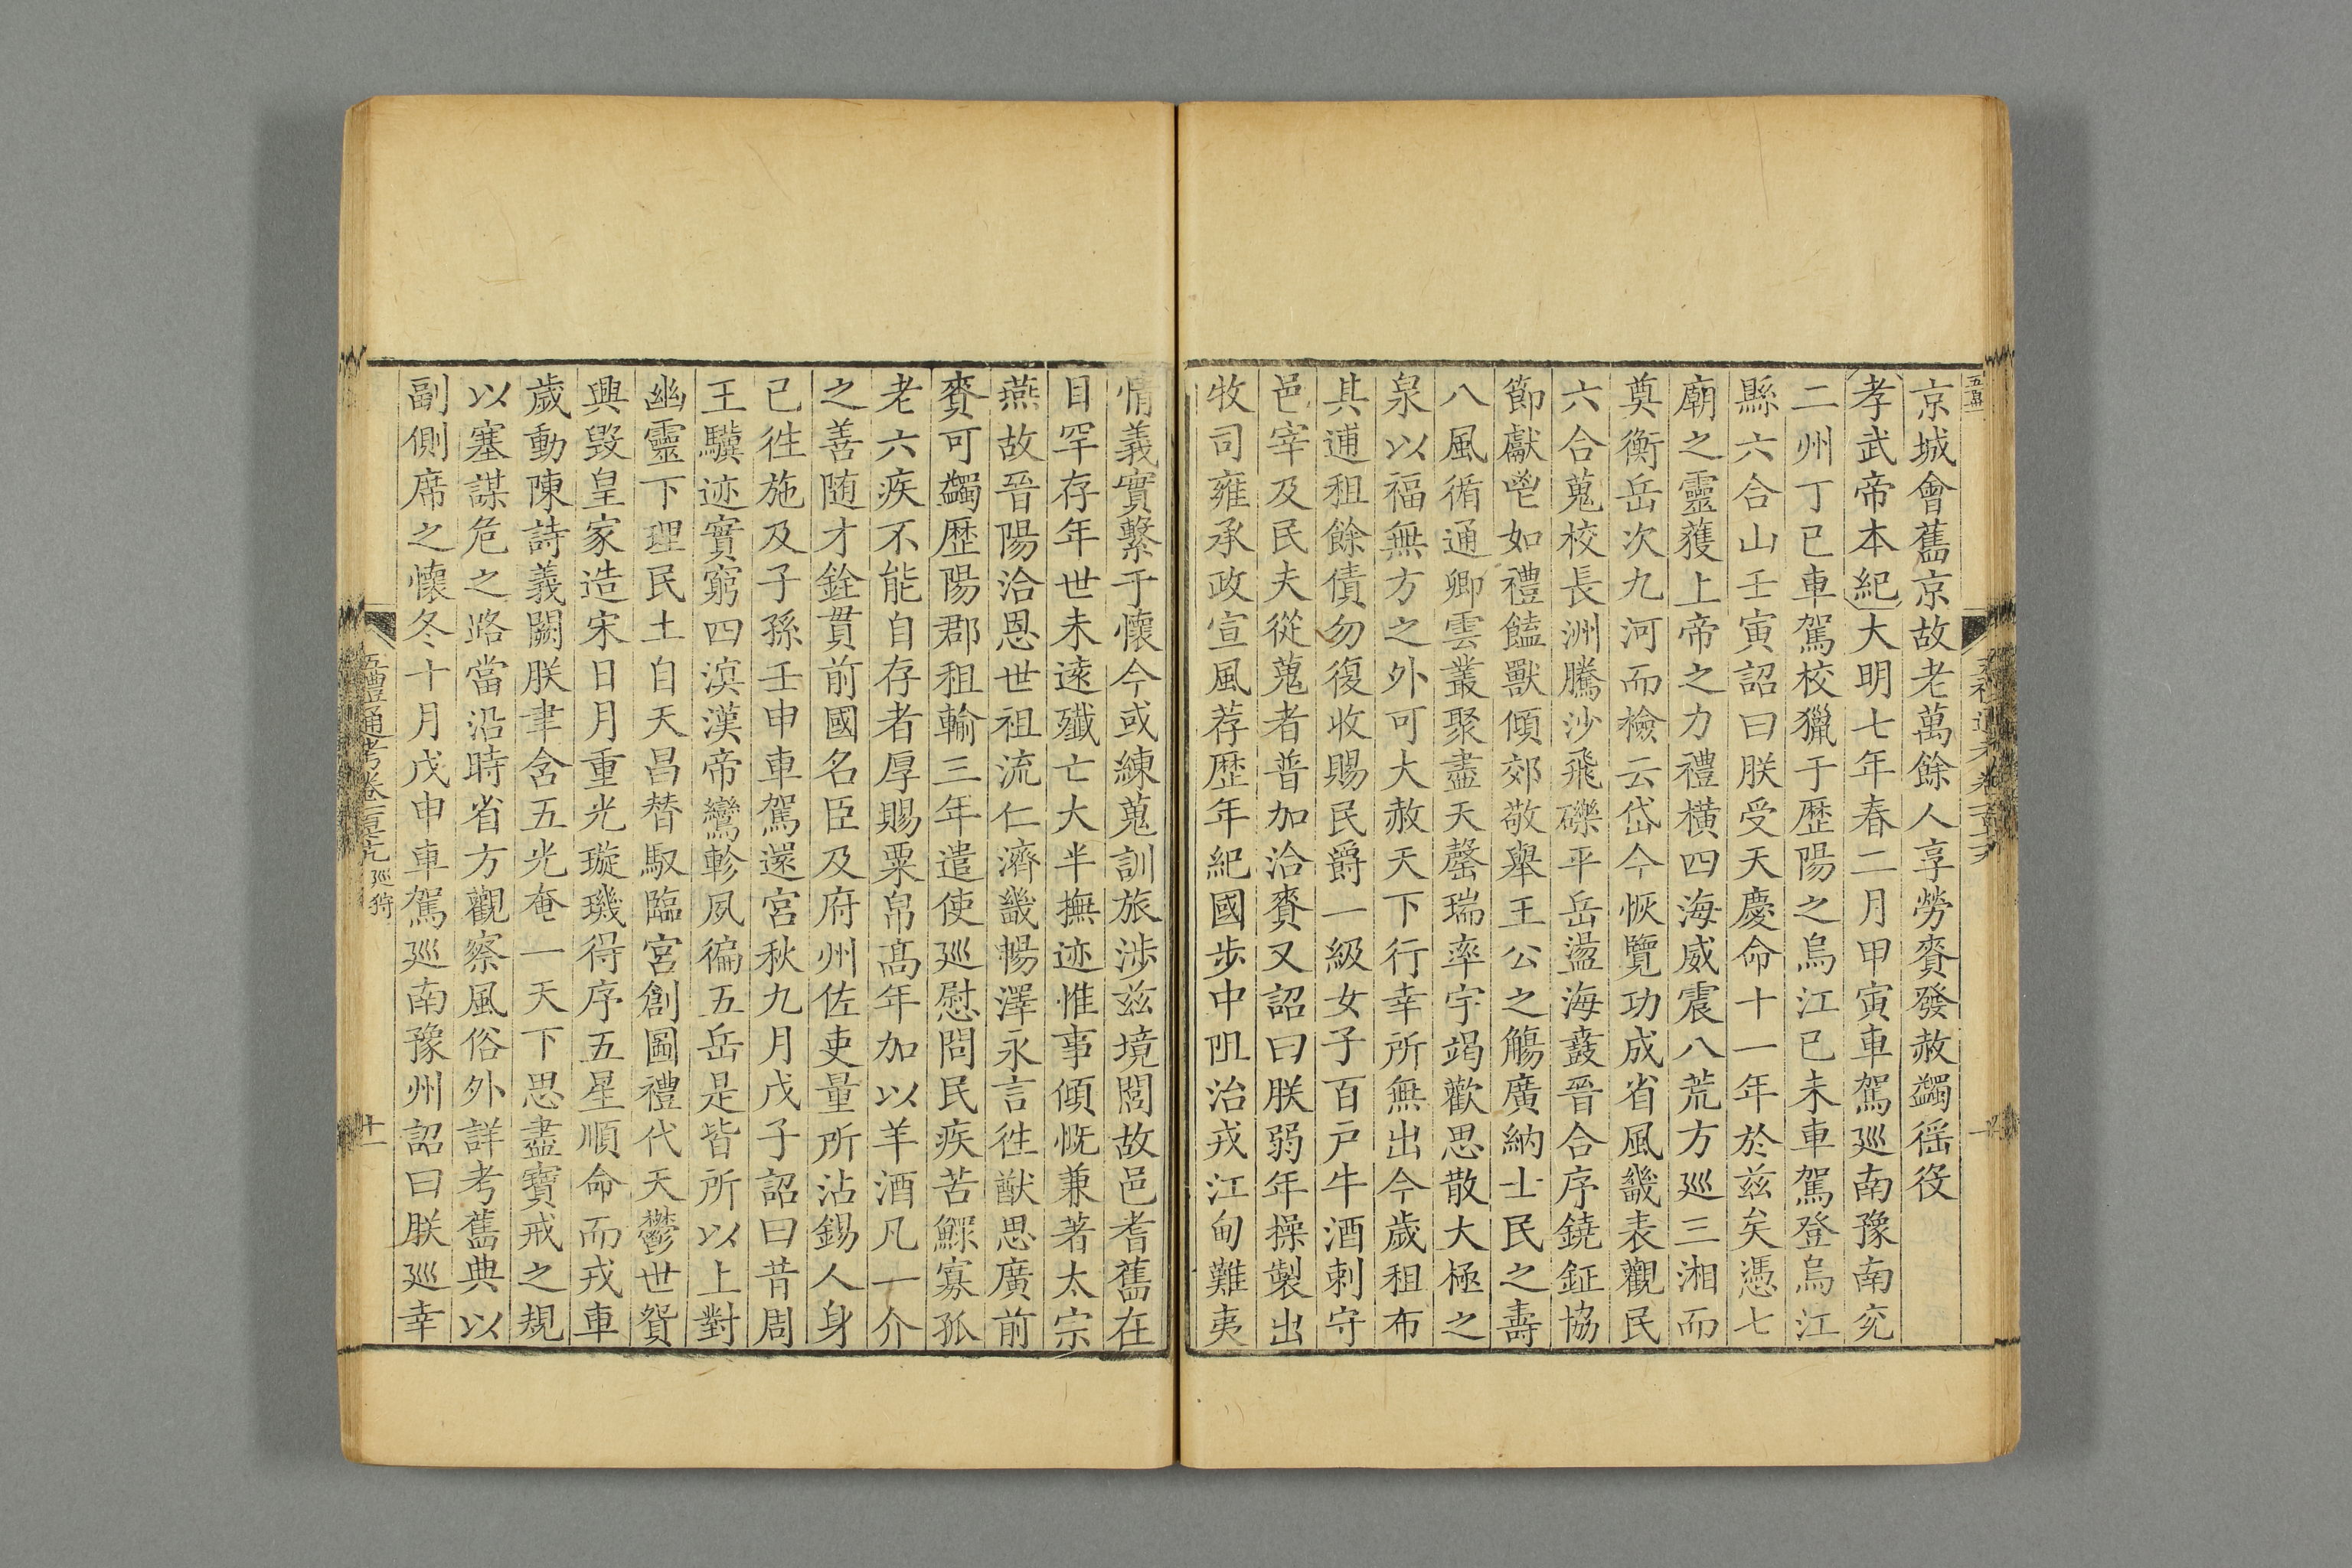 京城會舊京故老萬餘人享勞賚發赦蠲徭役
孝武帝本紀大明七年春二月甲寅車駕廵南豫南兖
二州丁巳車駕校獵于歴陽之烏江已未車駕登烏江
縣六合山壬寅詔曰朕受天慶命十一年於兹矣憑七
廟之靈獲上帝之力禮橫四海威震八荒方廵三湘而
奠衡岳次九河而檢云岱今恢覽功成省風畿表觀民
六合蒐校長洲騰沙飛礫平岳盪海鼖晉合序鐃鉦協
節獻鬯如禮饁獸傾郊敬舉王公之觴廣納士民之壽
八風循通卿雲叢聚盡天罄瑞率宇竭歡思散大極之
泉以福無方之外可大赦天下行幸所無出今歲租布
其逋租餘債勿復收賜民爵一級女子百戸牛酒刺守
邑宰及民夫從蒐者普加洽賚又詔曰朕弱年操製出
牧司雍承政宣風荐歴年紀國步中阻治戎江甸難夷
情義實繫于懷今或練蒐訓旅涉兹境閭故邑耆舊在
目罕存年世未逺殲亡大半撫迹惟事傾慨兼著太宗
燕故晉陽洽恩世祖流仁濟畿暢澤永言徃猷思廣前
賚可蠲歴陽郡租輸三年遣使廵慰問民疾苦鰥寡孤
老六疾不能自存者厚賜粟帛髙年加以羊酒凡一介
之善随才銓貫前國名臣及府州佐吏量所沾錫人身
已徃施及子孫壬申車駕還宮秋九月戊子詔曰昔周
王驥迹實窮四溟漢帝鸞軫夙徧五岳是皆所以上對
幽靈下理民土自天昌替馭臨宮創圖禮代夭鬱世貿
興毀皇家造宋日月重光璇璣得序五星順命而戎車
歲動陳詩義闕朕聿含五光奄一天下思盡寶戒之規
以塞謀危之路當沿時省方觀察風俗外詳考舊典以
副側席之懷冬十月戊申車駕廵南豫州詔曰朕廵幸
五禮通考卷一百七十九 廵狩
十一